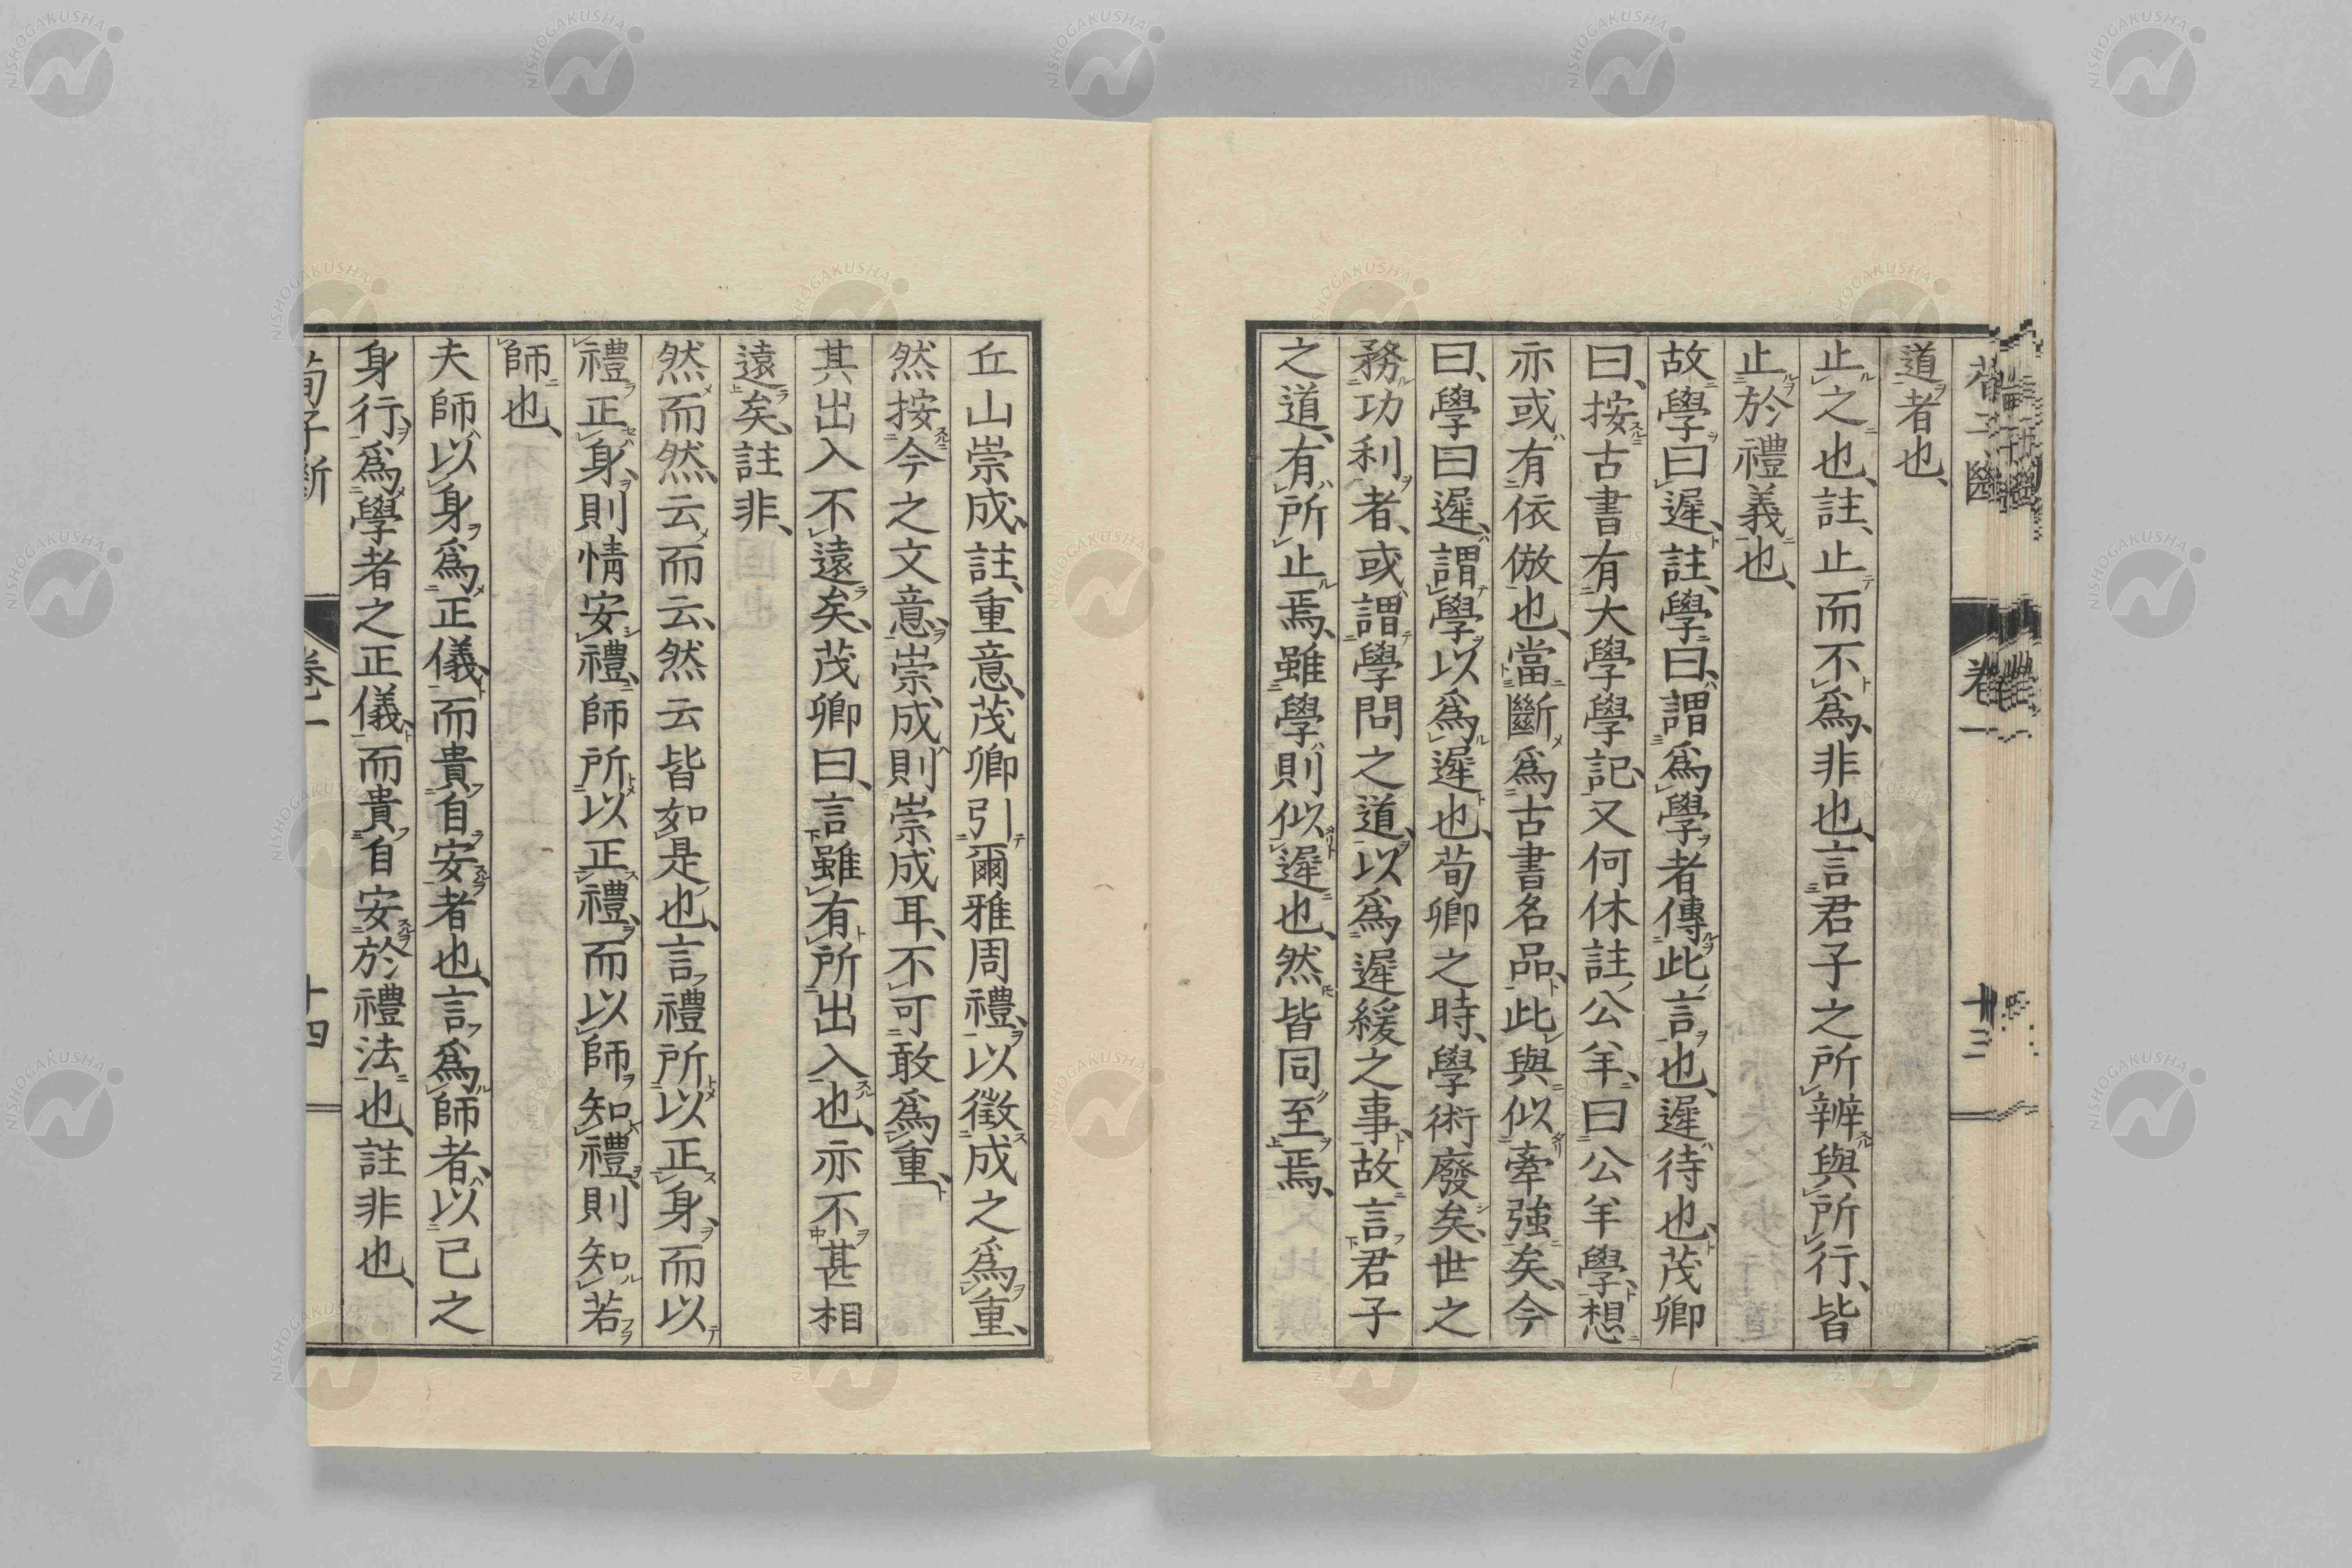 道者也、
止之也、註、止而不爲、非也、言君子之所辨與所行、皆
止於禮義也、
故學曰遲、註、學曰、謂爲學者傳此言也、遲待也、茂卿
曰、按古書有大學學記、又何休註公羊、曰公羊學、想
亦或有依倣也、當斷爲古書名品、此與似牽強矣、今
曰、學曰遲、謂學以爲遲也、荀卿之時、學術廢矣、世之
務功利者、或謂學問之道、以爲遲緩之事、故言君子
之道、有所止焉、雖學則似遲也、然皆同至焉、
丘山崇成、註、重意、茂卿引爾雅周禮、以徵成之爲重、
然按今之文意、崇成則崇成耳、不可敢爲重、
其出入不遠矣、茂卿曰、言雖有所出入也、亦不甚相
遠矣、註非、
然而然、云而云、然云皆如是也、言禮所以正身、而以
禮正身、則情安禮、師所以正禮、而以師知禮、則知若
師也、
夫師以身爲正儀、而貴自安者也、言爲師者、以己之
身行、爲學者之正儀、而貴自安於禮法也、註非也、
荀子斷
卷一
十四
卷一
十三
NISHOGAKUSHA